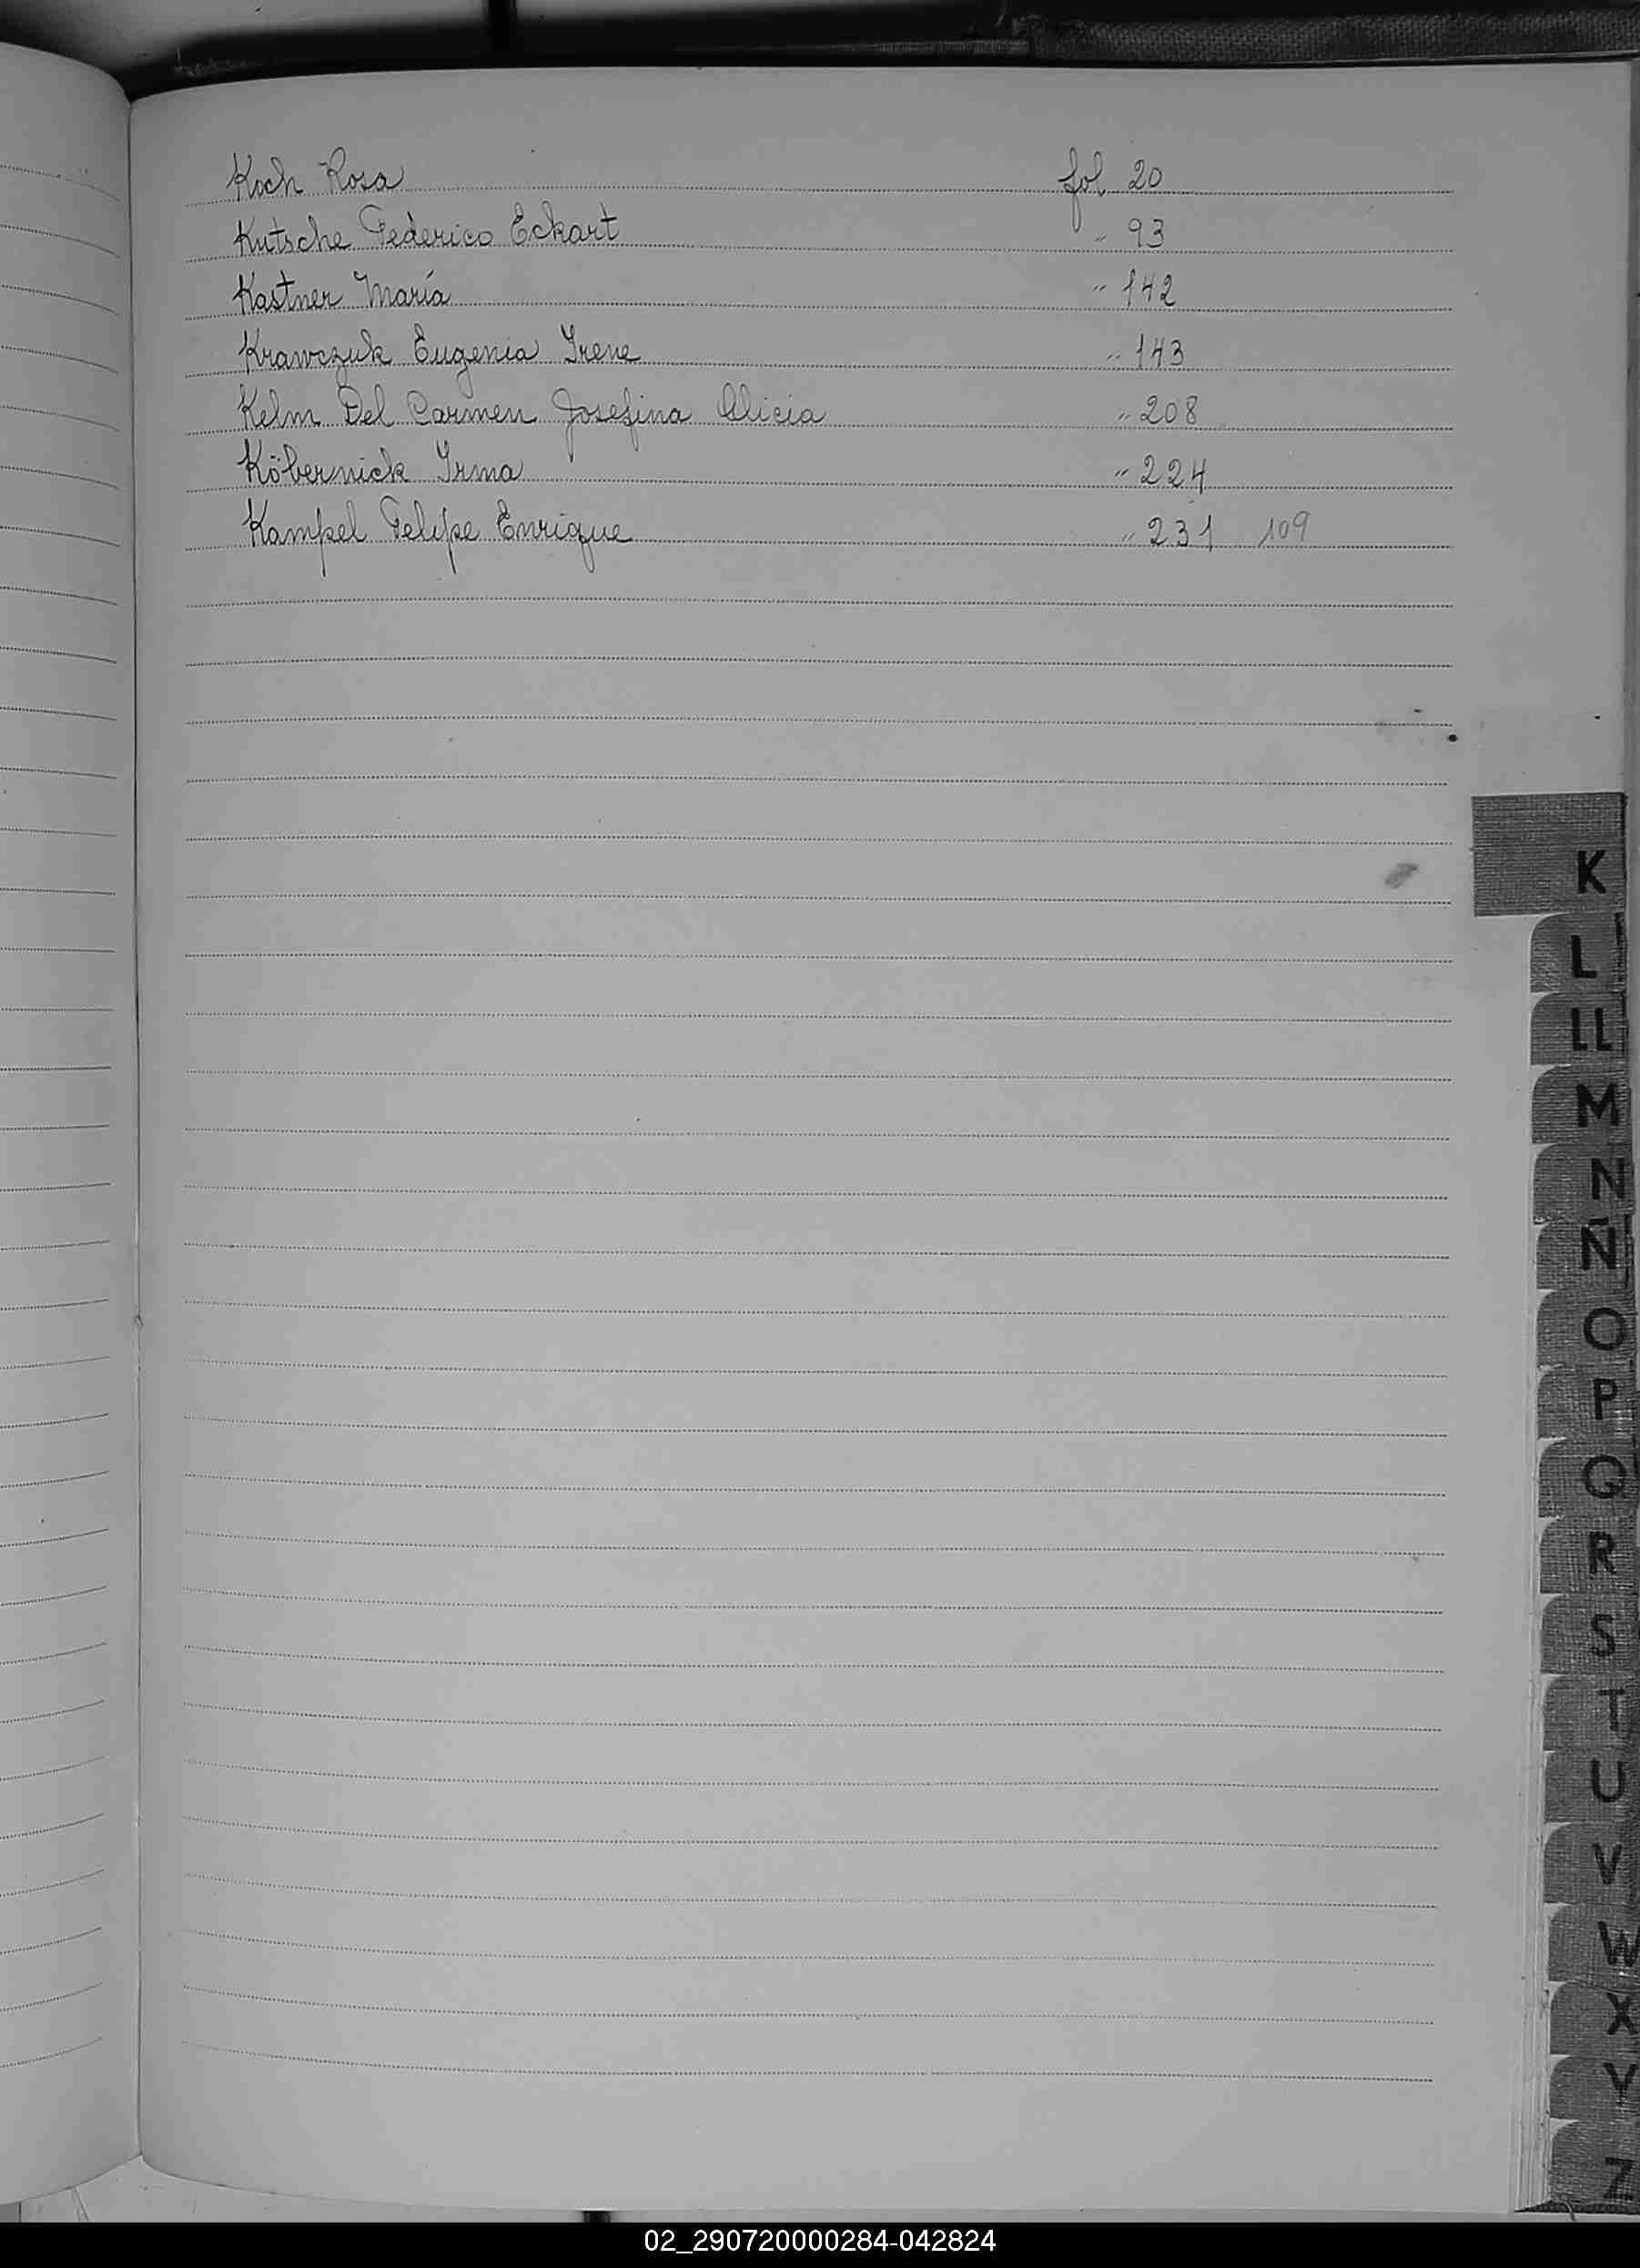 Koch Rosa fol 20
Kutsche Federico Eckart " 93
Kastner María " 142
Krawczuk Eugenia Irene " 143
Kelm Del Carmen Josefina Alicia " 208
Köbernick Irma " 224
Kampel Felipe Enrique " 231 109
K
L
LL
M
N
Ñ
O
P
Q
R
S
T
U
V
W
X
Y
Z
02_290720000284-042824